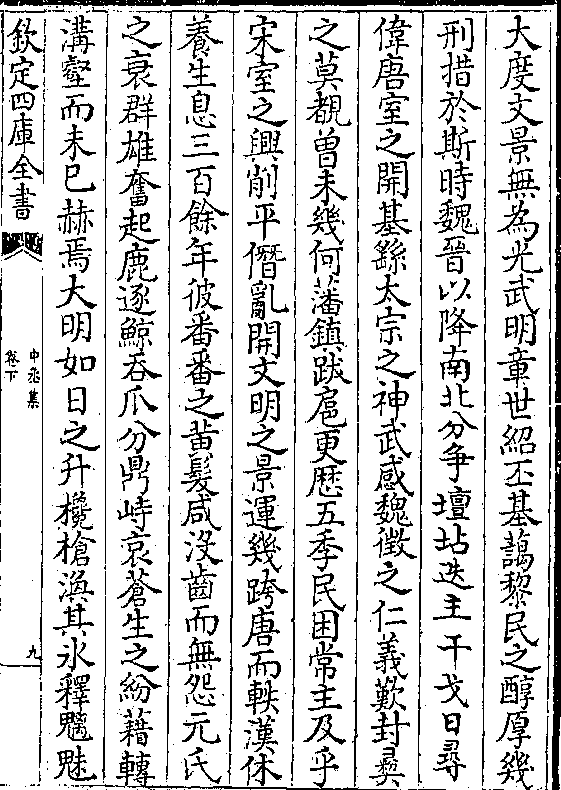 大度文景無為光武明章世紹丕基藹黎民之醇厚幾
刑措於斯時魏晉以降南北分争壇坫迭主干戈日尋
偉唐室之開基繇太宗之神武感魏徵之仁義歎封彛
之莫覩曾未幾何藩鎮跋扈更歴五季民困常主及乎
宋室之興削平僭亂開文明之景運幾跨唐而軼漢休
養生息三百餘年彼番番之黄髮咸没齒而無怨元氏
之衰群雄奮起鹿逐鯨吞爪分鼎峙哀蒼生之紛藉轉
溝壑而未已赫焉大明如日之升欃槍渙其氷釋魑魅
欽定四庫全書
中丞集
卷下
九